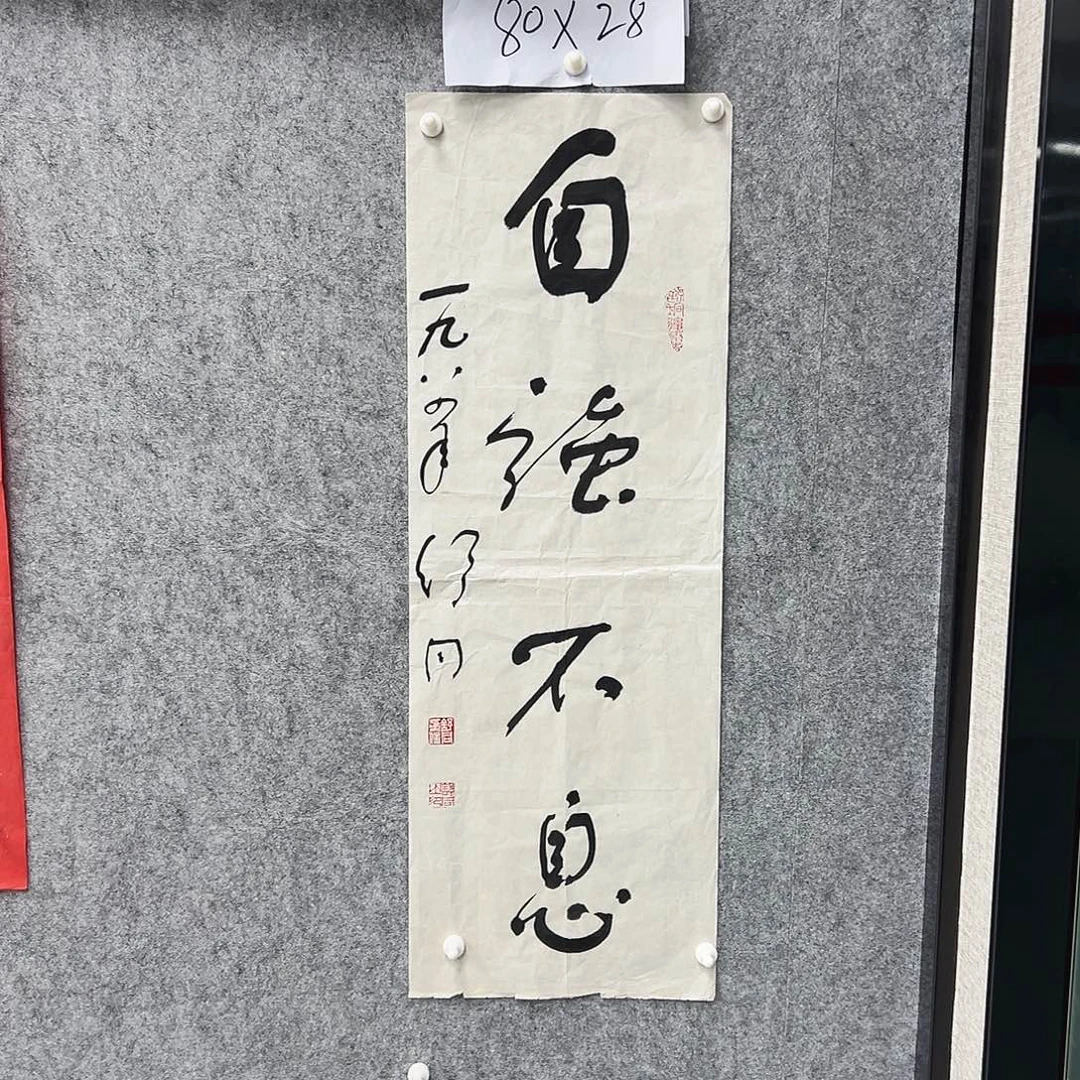 80X28
自強不息
一九八四年 舒同